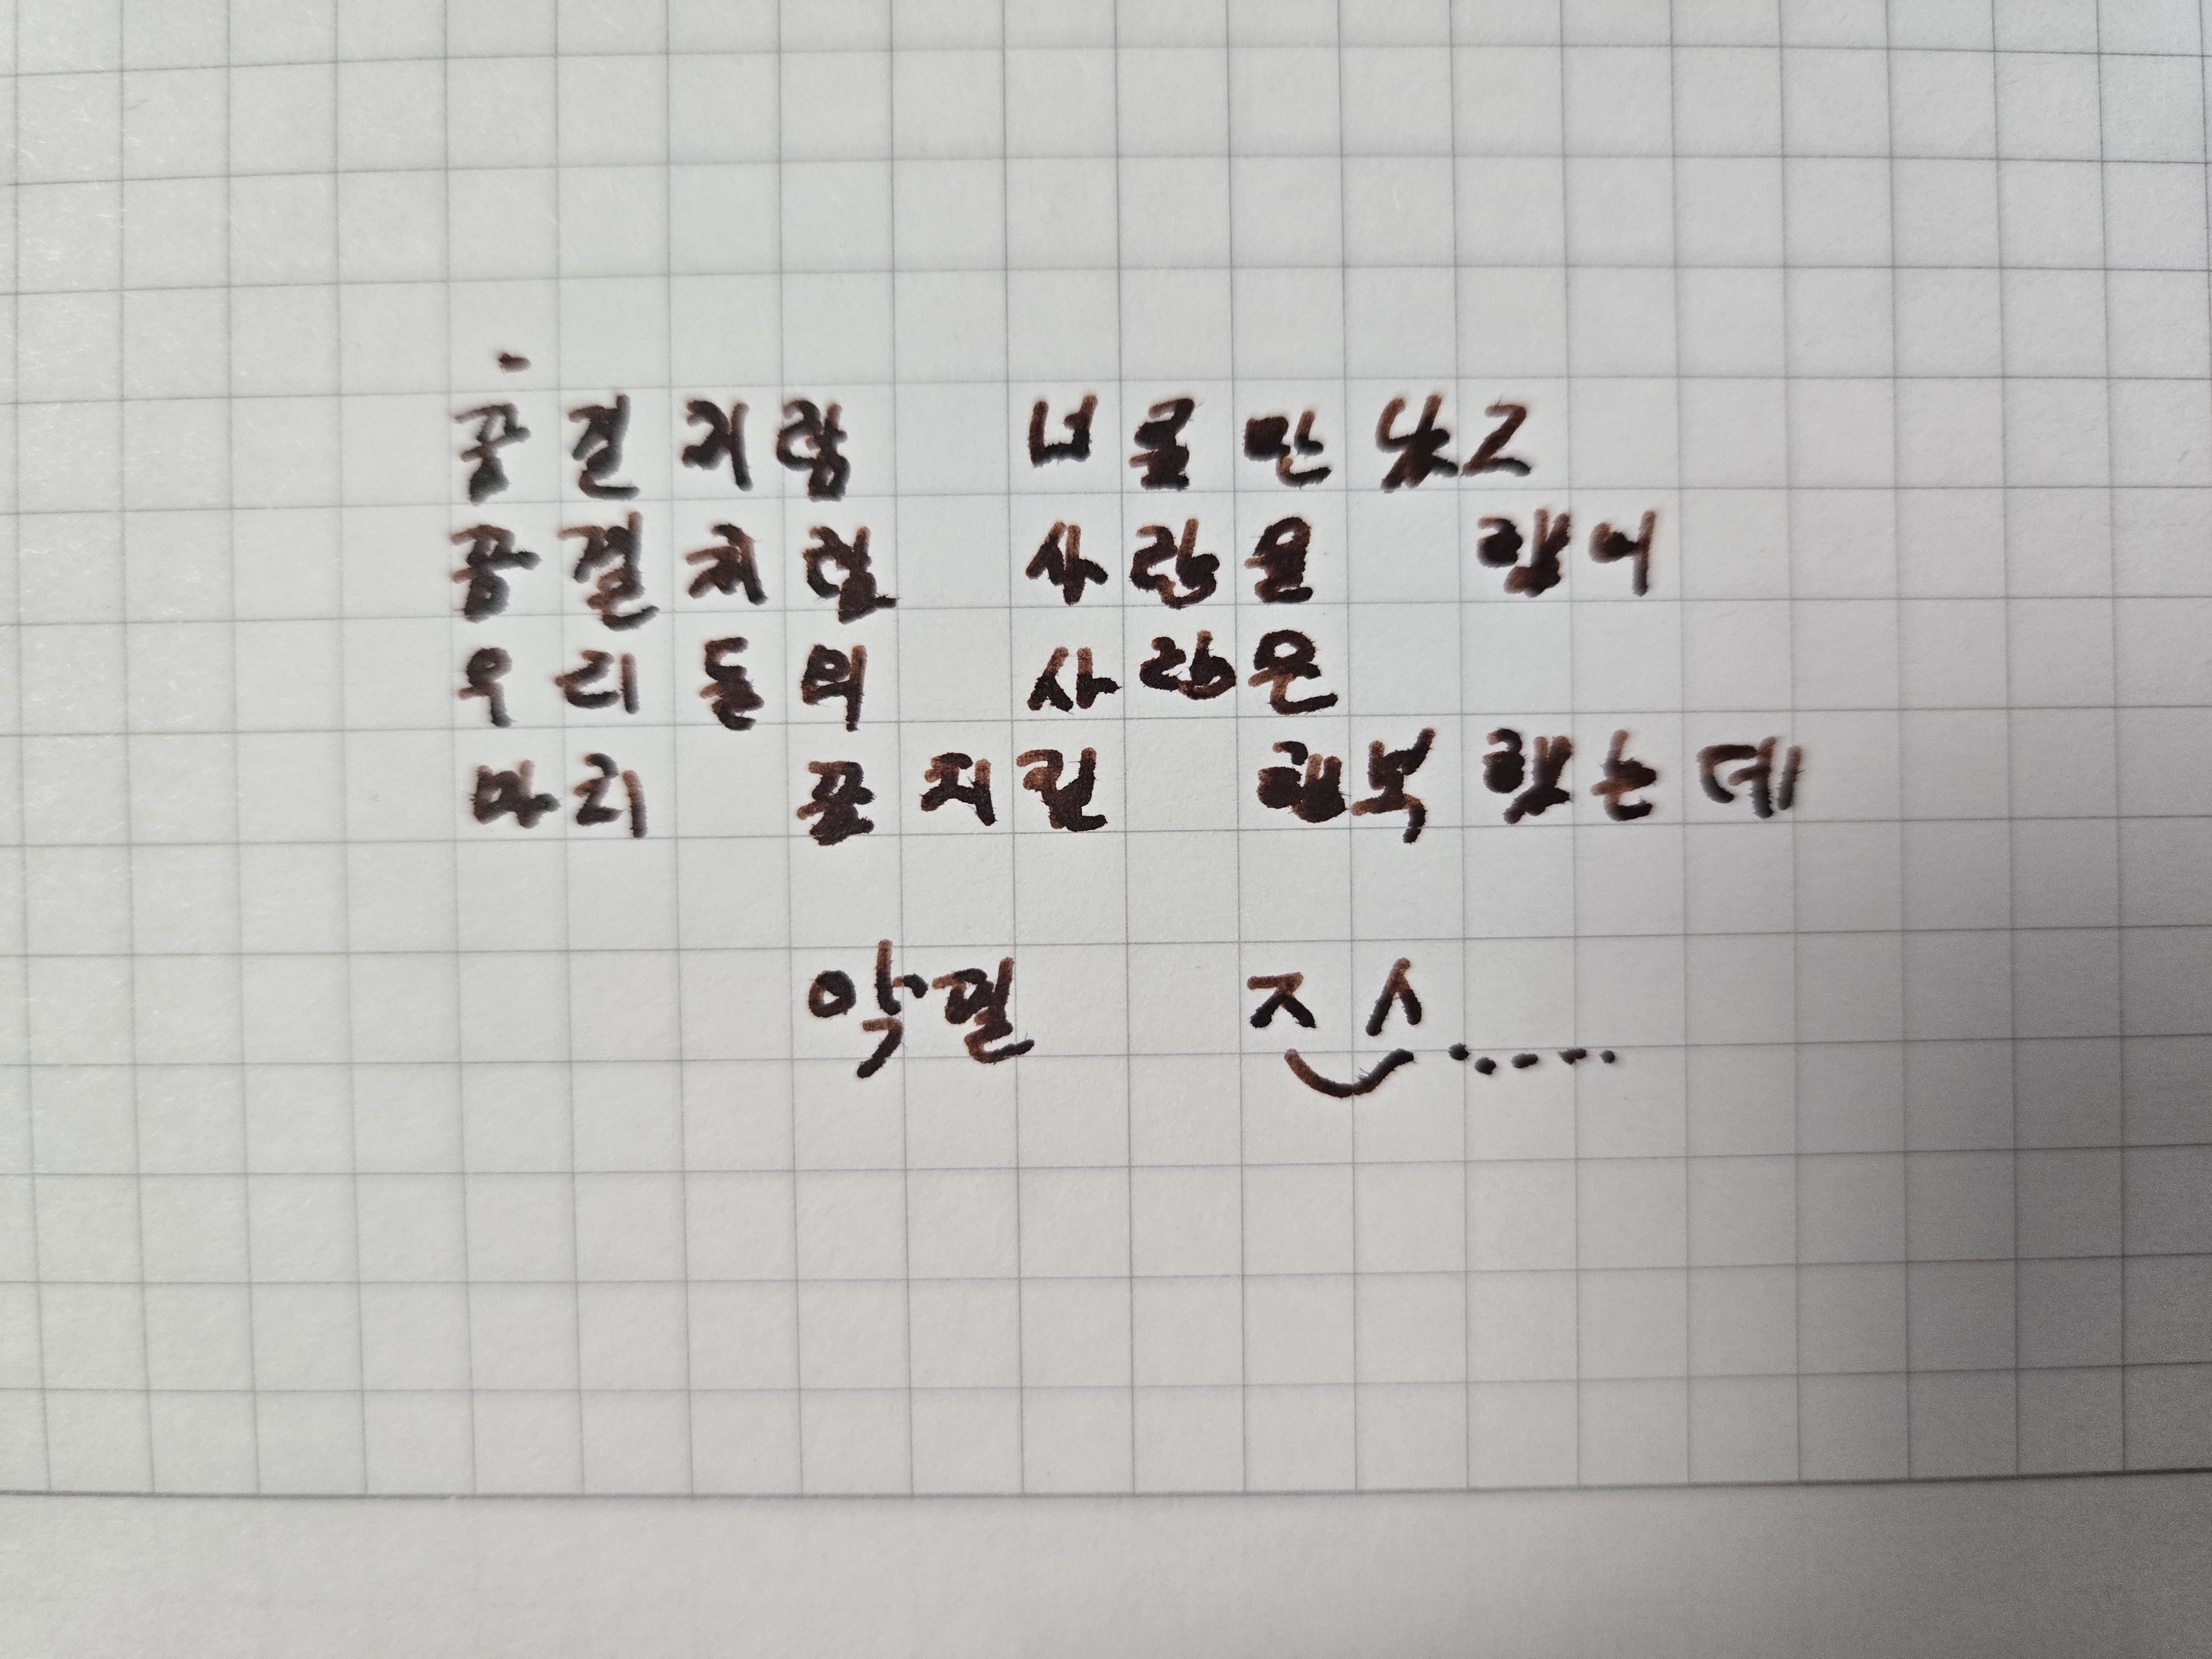 꿈결처럼 너를만났고
꿈결처럼 사랑을 했어
우리들의 사랑은
마리 꿈처럼 행복했는데
악필 ㅈㅅ......